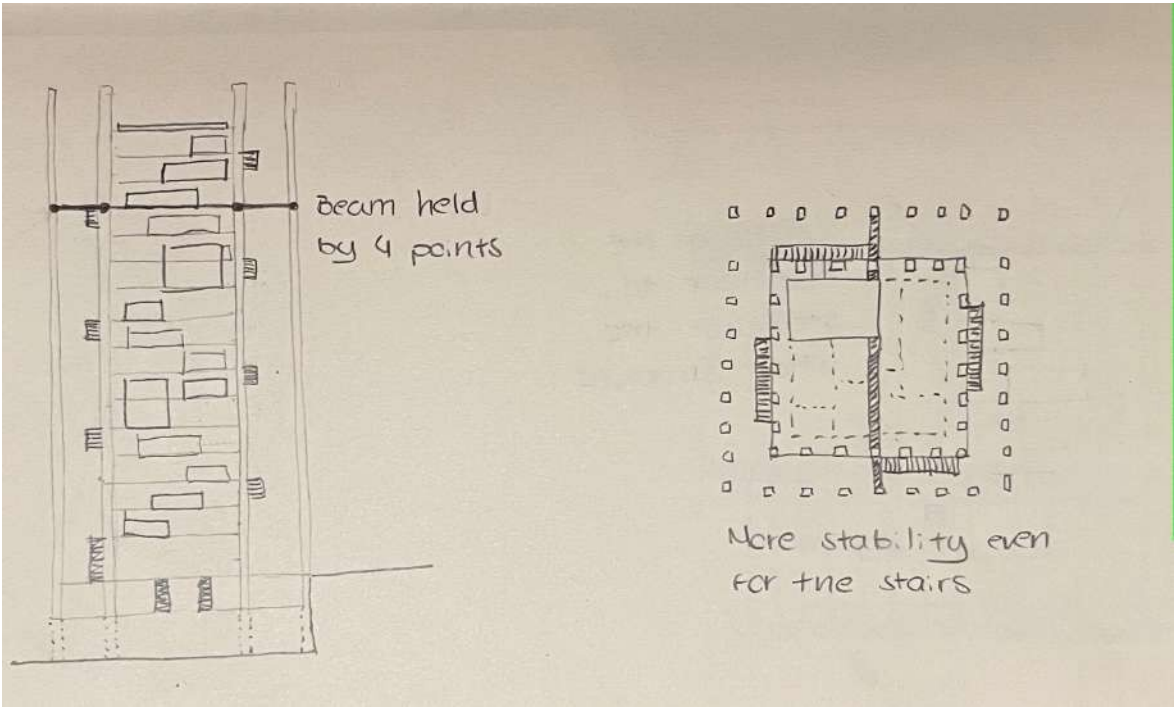 Beam held
by 4 points
More stability even
for the stairs